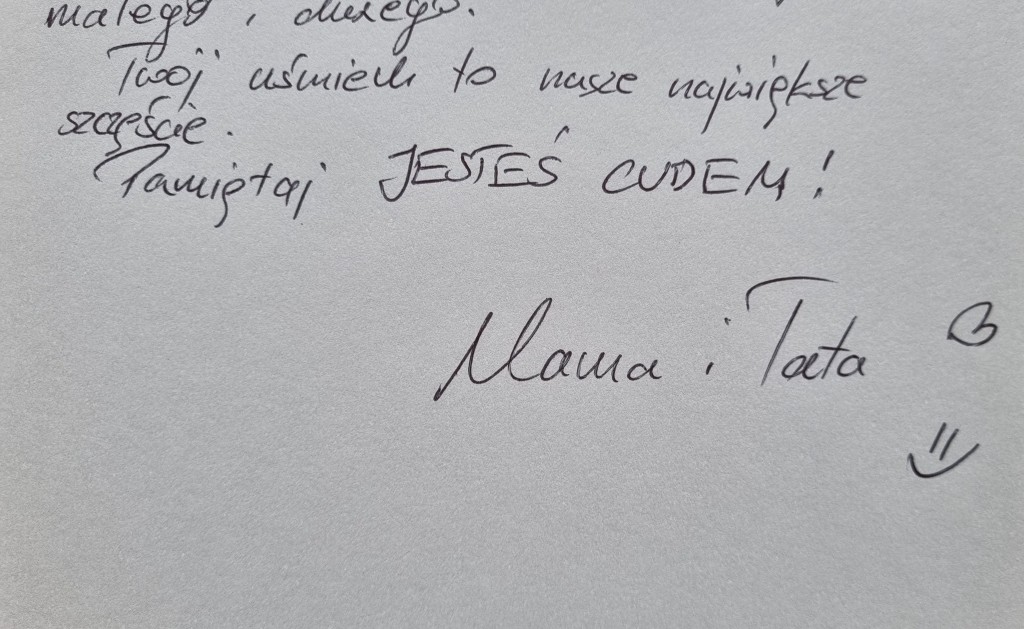 małego i dużego.
Twój uśmiech to nasze największe
szczęście.
Pamiętaj JESTEŚ CUDEM!
Mama i Tata